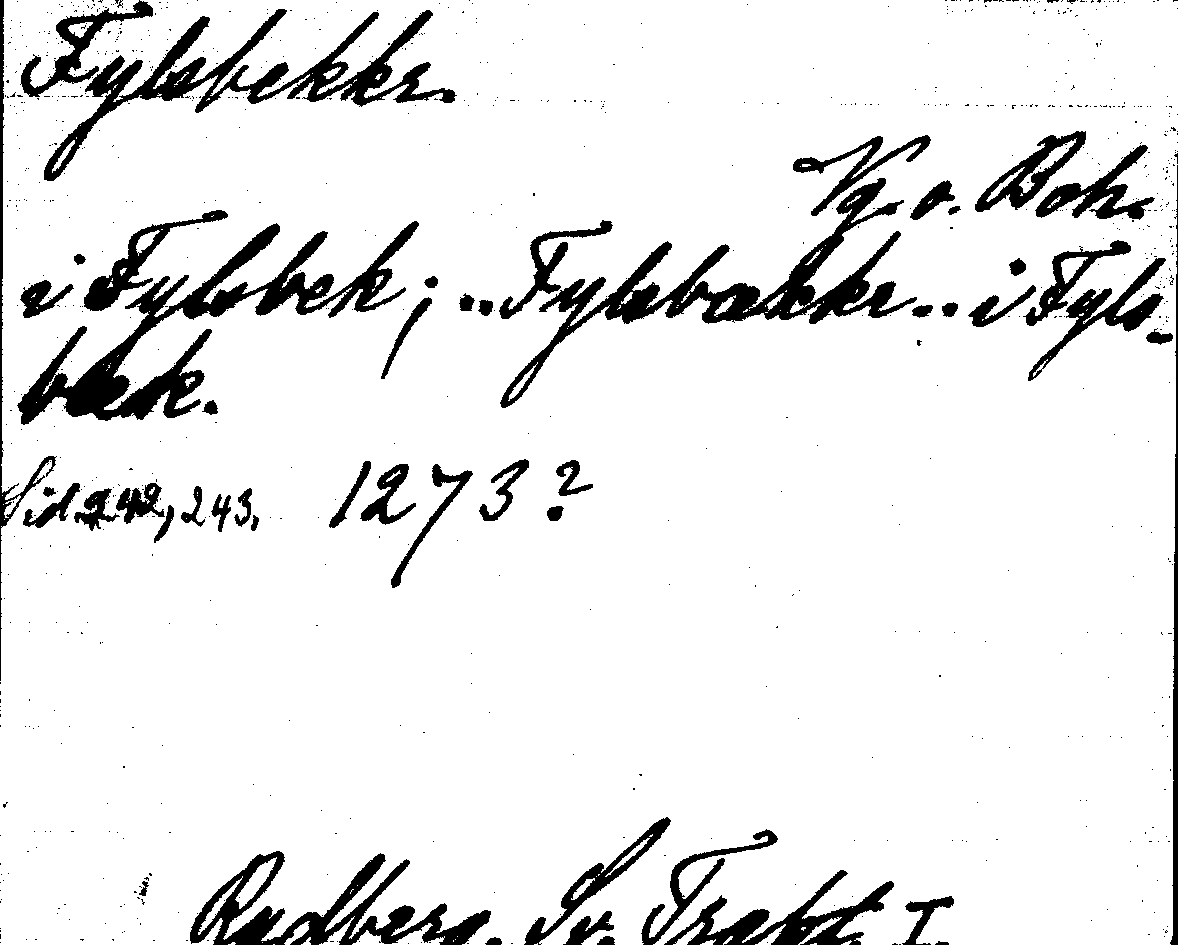 Fylsbekkr.
Vg. o. Boh.
i Fylsbek; .. Fylsbækkr .. i Fyls-
bæk.
Sid 242, 243. 1273?
Rydberg. Sv. Trakt. I.